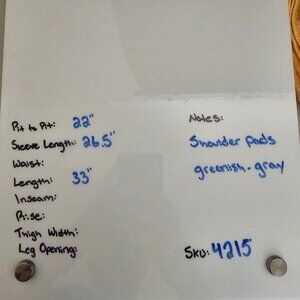 Pit to Pit: 22"
Sleeve Length: 26.5"
Waist:
Length: 33"
Inseam:
Rise:
Thigh Width:
Leg Opening:
Notes:
Shoulder pads
greenish-gray
SKU: 4215